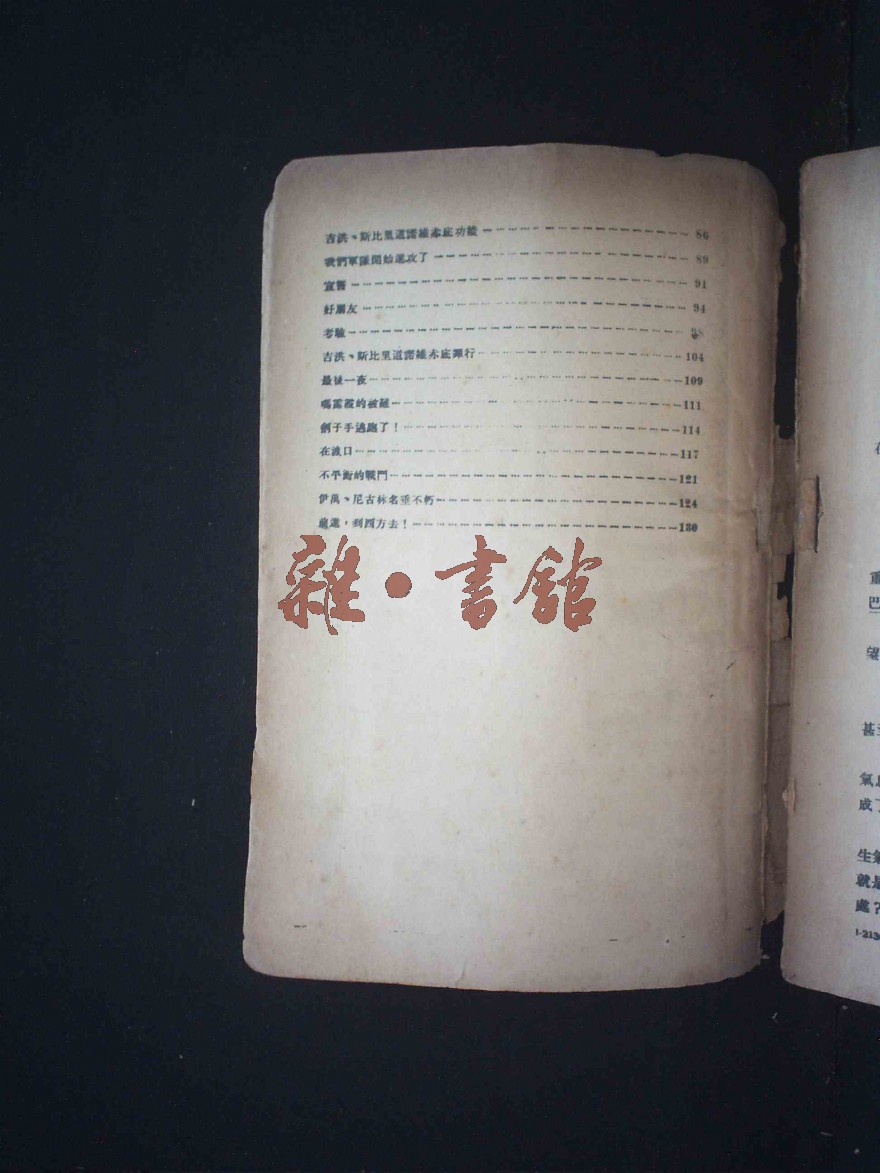 吉洪、斯比里道諾維赤底功績 86
我們軍隊開始進攻了 89
宣誓 91
好朋友 94
考驗 98
吉洪、斯比里道諾維赤底罪行 104
最後一夜 109
嗎露霞的被難 111
劊子手逃跑了！ 114
在渡口 117
不平衡的戰鬥 121
伊萬、尼古林名垂不朽 124
前進，到西方去！ 130
雜●書館
重
巴
望
甚至
氣息
成了
生氣
就是
處？